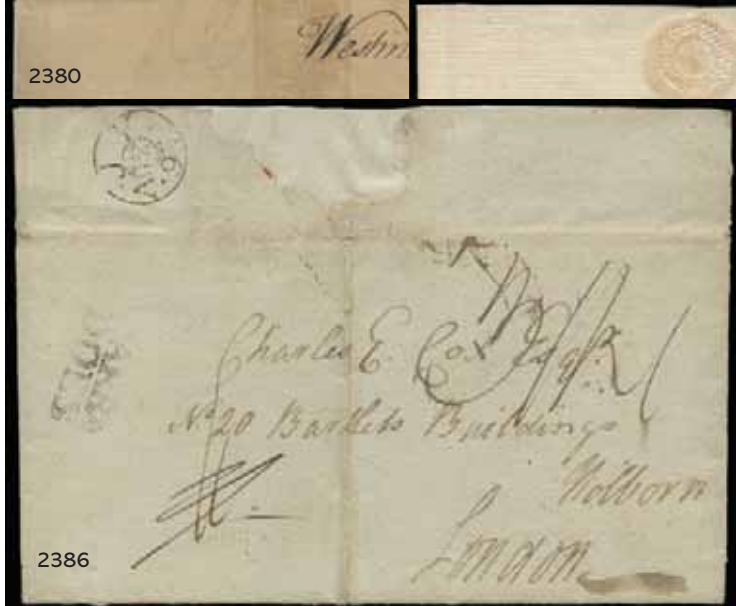 2380
Charles E. Cox Esqr.
No 20 Bartlets Buildings
Holborn
London
2386